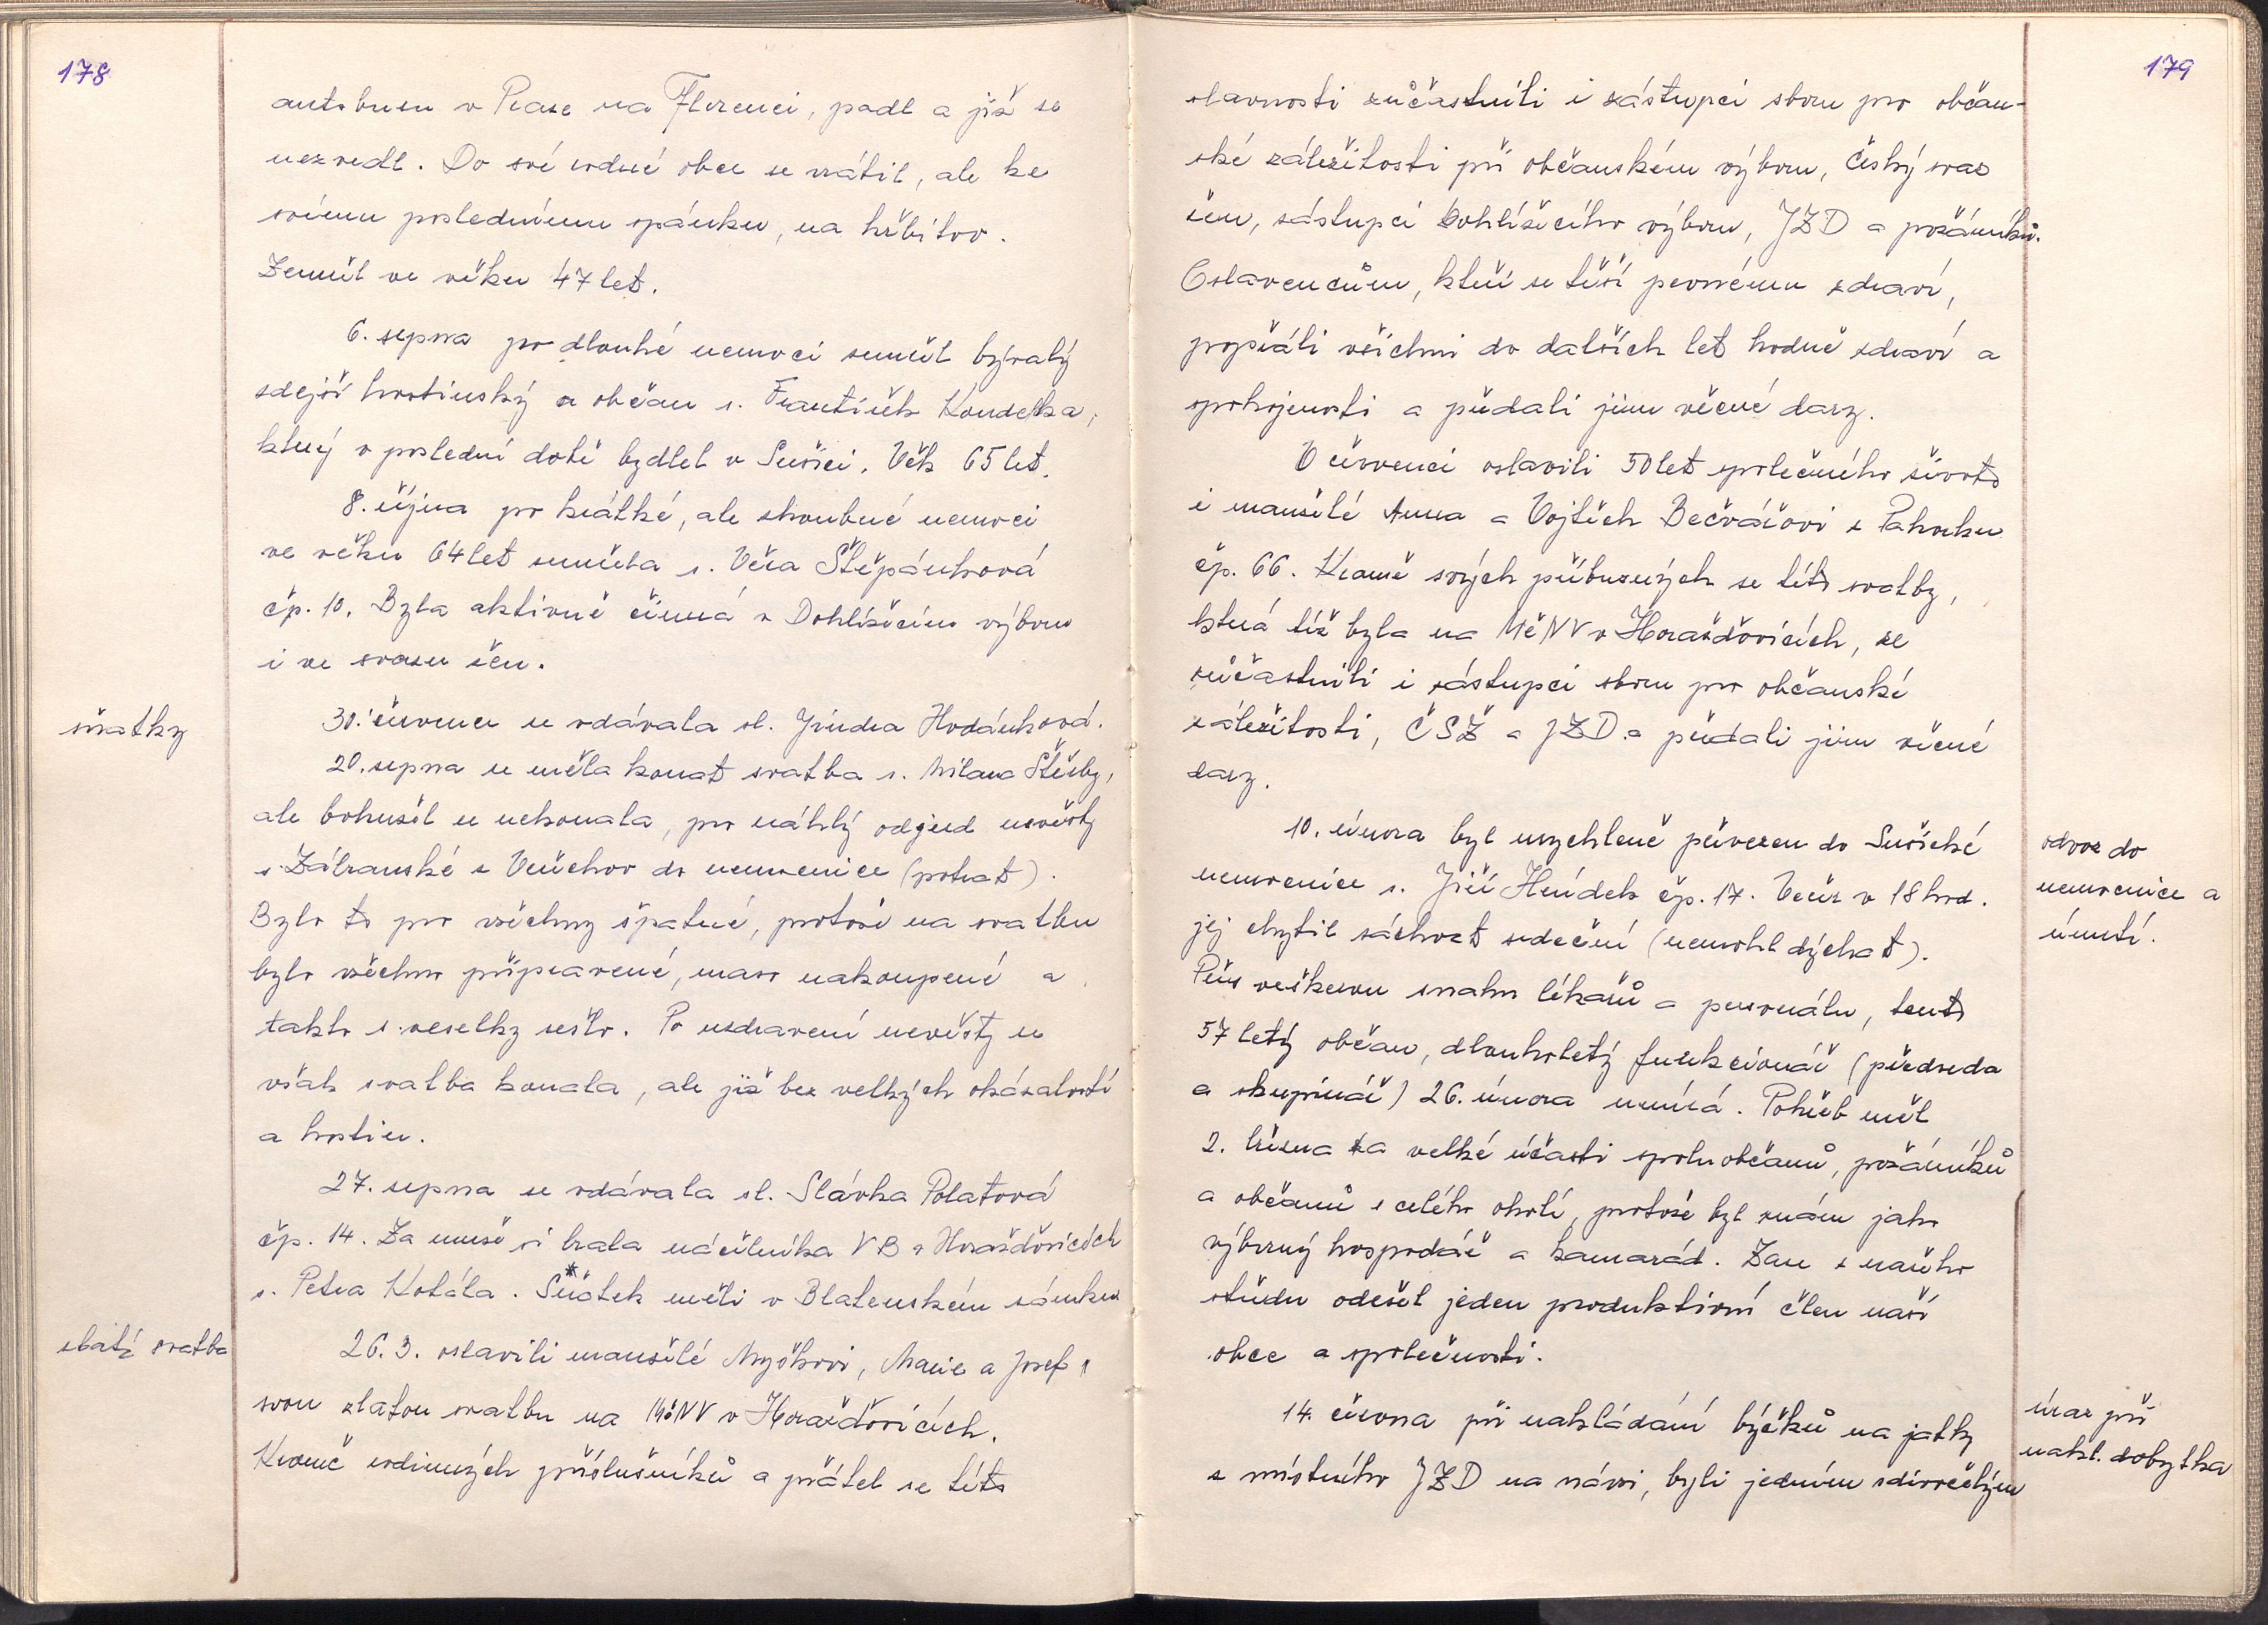 178
autobusu v Praze na Florenci, padl a již se
nezvedl. Do své rodné obce se vrátil, ale ke
svému poslednímu spánku, na hřbitov.
Zemřel ve věku 47 let.
6. srpna po dlouhé nemoci zemřel bývalý
zdejší hostinský a občan s. František Koudelka,
který v poslední době bydlel v Sušici. Věk 65 let.
8. října po krátké, ale zhoubné nemoci
ve věku 64 let zemřela s. Věra Štěpánková
čp. 10. Byla aktivně činná v Dohlížecím výboru
i ve svazu žen.
sňatky
30. července se vdávala sl. Jindra Hodánková.
20. srpna se měla konat svatba s. Milana Štěrby,
ale bohužel se nekonala, pro náhlý odjezd nevěsty
s. Zátranské z Veřechov do nemocnice (potrat).
Bylo to pro všechny špatné, protože na svatbu
bylo všechno připravené, maso nakoupené a
takto z veselky sešlo. Po uzdravení nevěsty se
však svatba konala, ale již bez velkých okázalostí
a hostin.
27. srpna se vdávala sl. Slávka Polatová
čp. 14. Za muže si brala náčelníka VB v Horažďovicích
s. Petra Kotála. Sňatek měli v Blatenském zámku
zlatá svatba
26. 3. oslavili manželé Myškovi, Marie a Josef
svou zlatou svatbu na MěNV v Horažďovicích.
Kromě rodinných příslušníků a přátel se této
179
slavnosti zúčastnili i zástupci sboru pro občan-
ské záležitosti při občanském výboru, Český svaz
žen, zástupci Dohlížecího výboru, JZD a požárníků.
Oslavencům, kteří se těší pevnému zdraví,
popřáli všichni do dalších let hodně zdraví a
spokojenosti a předali jim věcné dary.
V červenci oslavili 50 let společného života
i manželé Anna a Vojtěch Bečvářovi z Pahorku
čp. 66. Kromě svých příbuzných se této svatby,
která též byla na MěNV v Horažďovicích, se
zúčastnili i zástupci sboru pro občanské
záležitosti, ČSŽ a JZD a předali jim věcné
dary.
10. února byl urychleně převezen do Sušické
nemocnice s. Jiří Hrídek čp. 17. Večer v 18 hod.
jej chytil záchvat srdeční (nemohl dýchat).
Přes veškerou snahu lékařů a personálu, tento
57 letý občan, dlouholetý funkcionář (předseda
a skupinář) 26. února umírá. Pohřeb měl
2. března za velké účasti spoluobčanů, požárníků
a občanů z celého okolí, protože byl znám jako
výborný hospodář a kamarád. Zase z našeho
středu odešel jeden produktivní člen naší
obce a společnosti.
odvoz do
nemocnice a
úmrtí.
14. června při nakládání býčků na jatky
z místního JZD na návsi, byli jedním zdivočelým
úraz při
nakl. dobytka